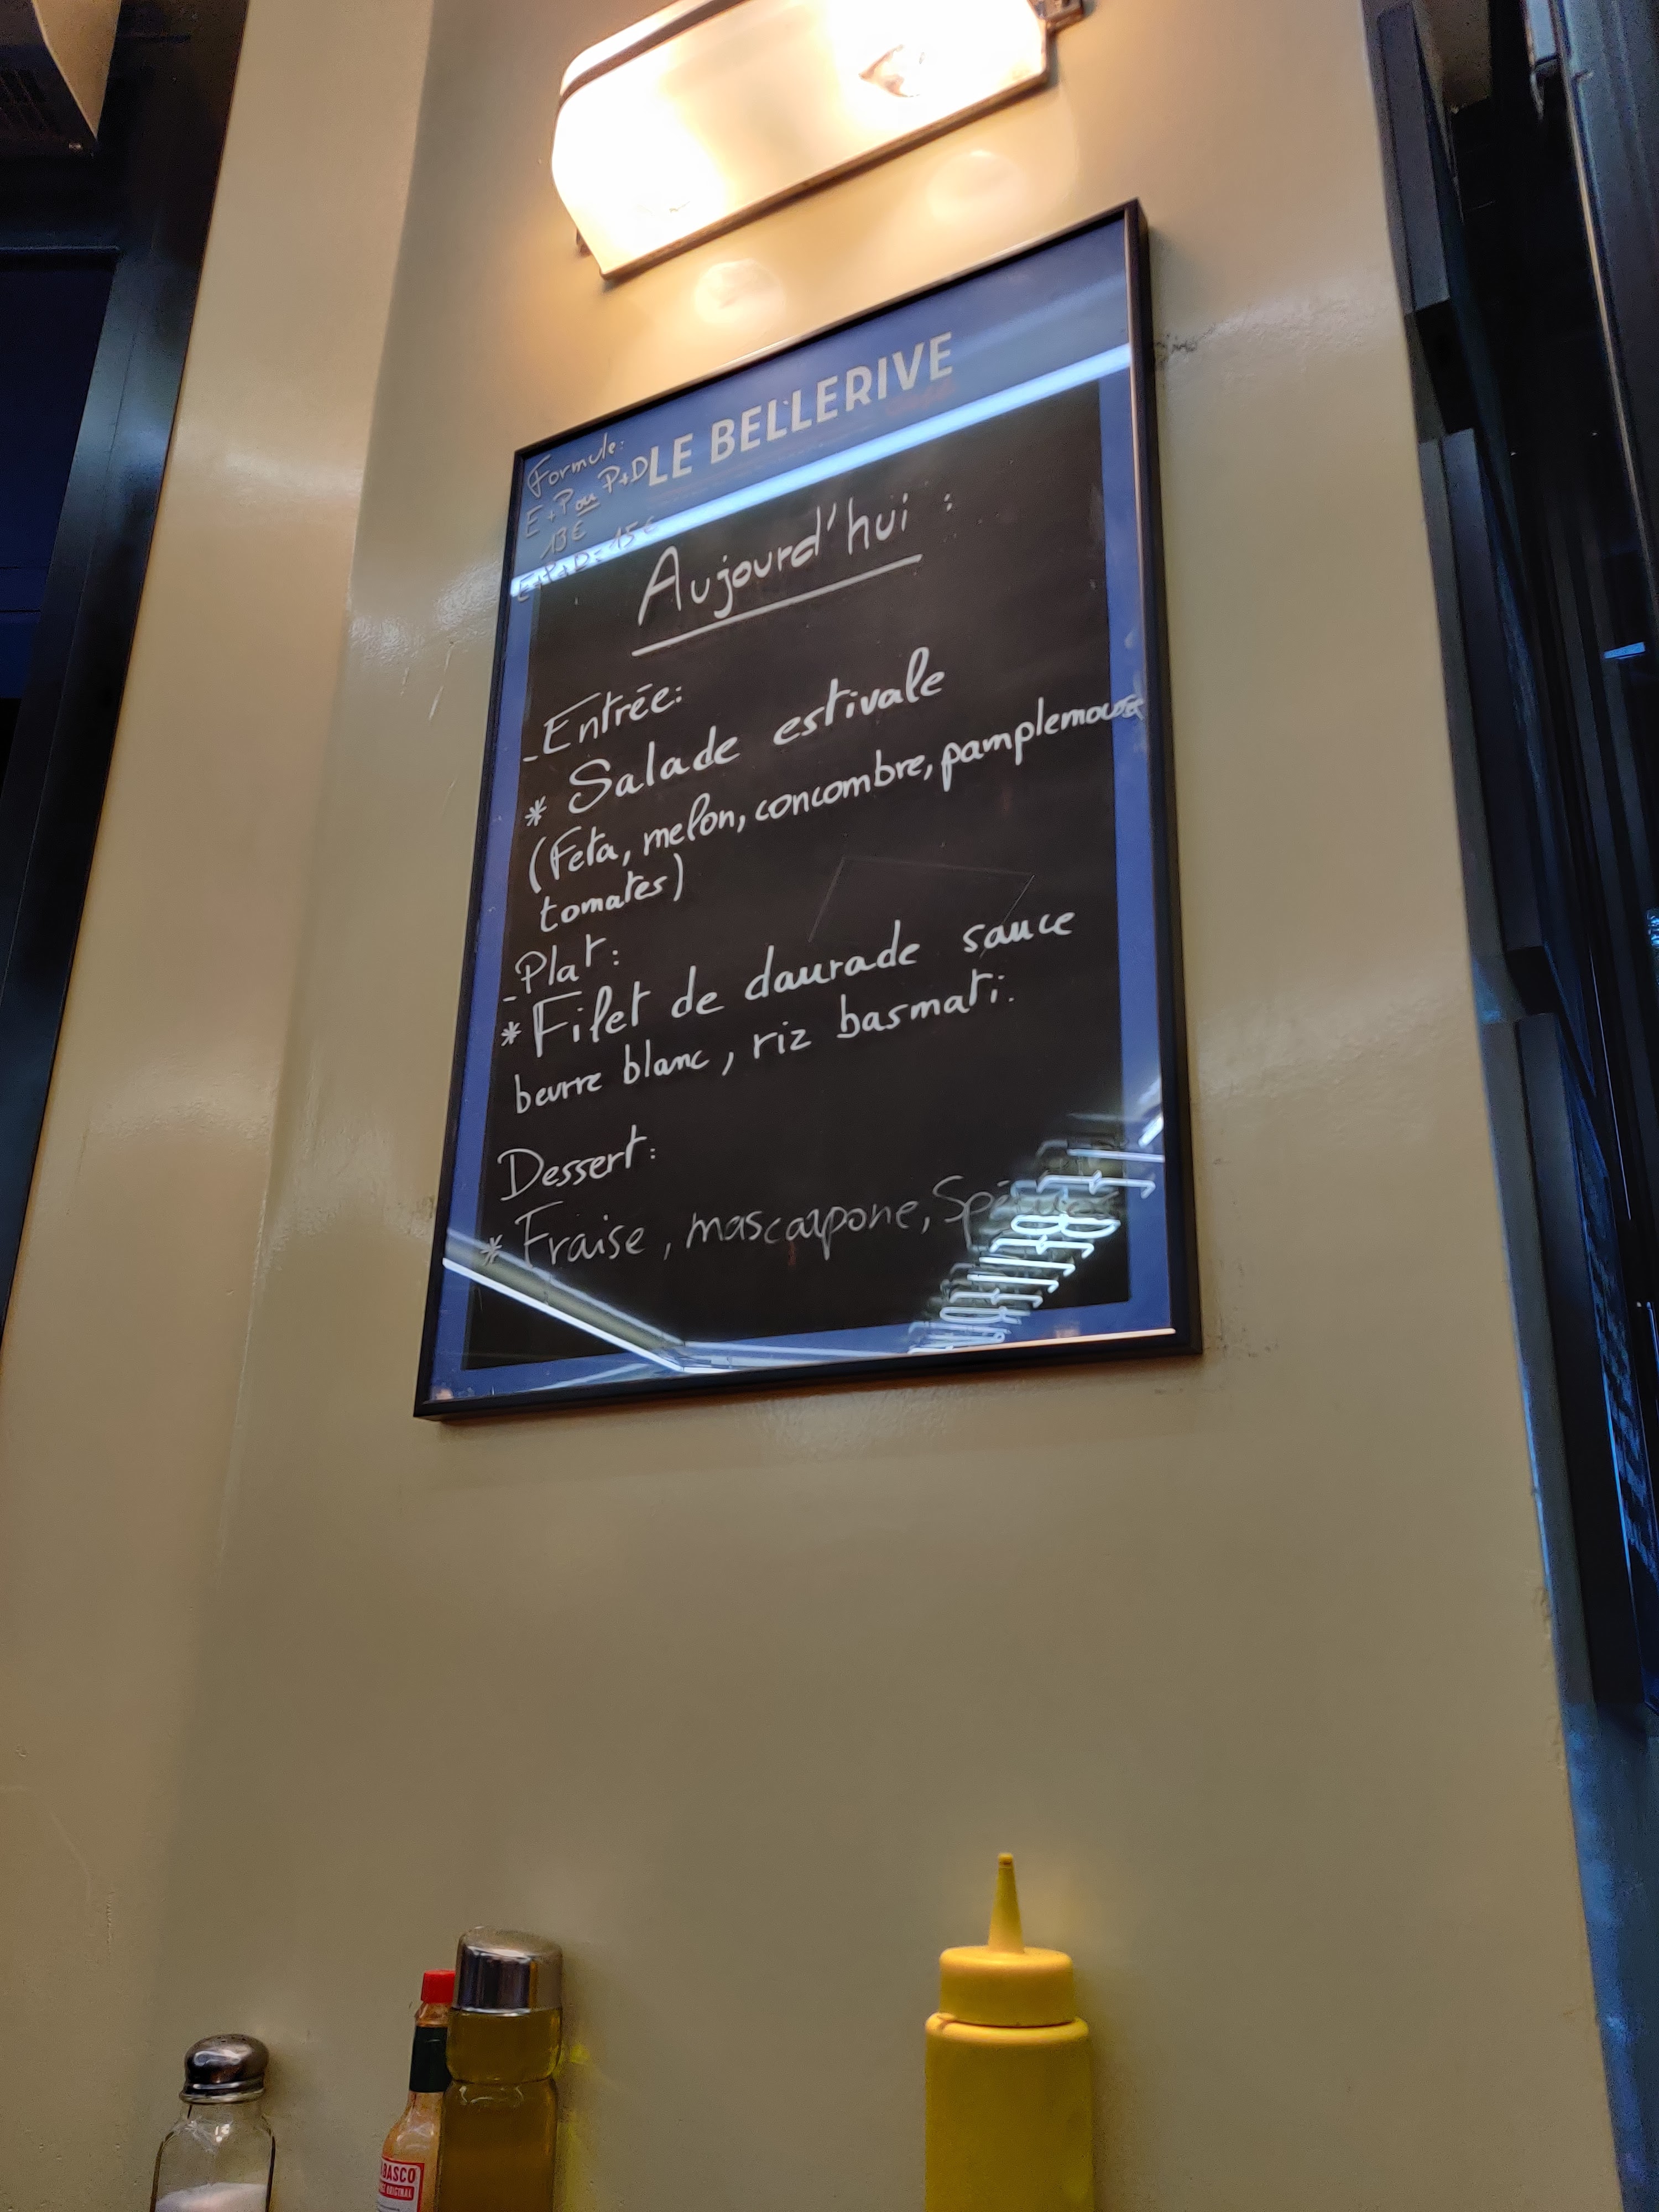 LE BELLERIVE
Formule:
E+P ou P+D
13€
E+P+D=15€
Aujourd'hui :
-Entrée:
* Salade estivale
(Feta, melon, concombre, pamplemousse
tomates)
-Plat:
*Filet de daurade sauce
beurre blanc, riz basmati.
Dessert:
* Fraise, mascarpone,
TABASCO